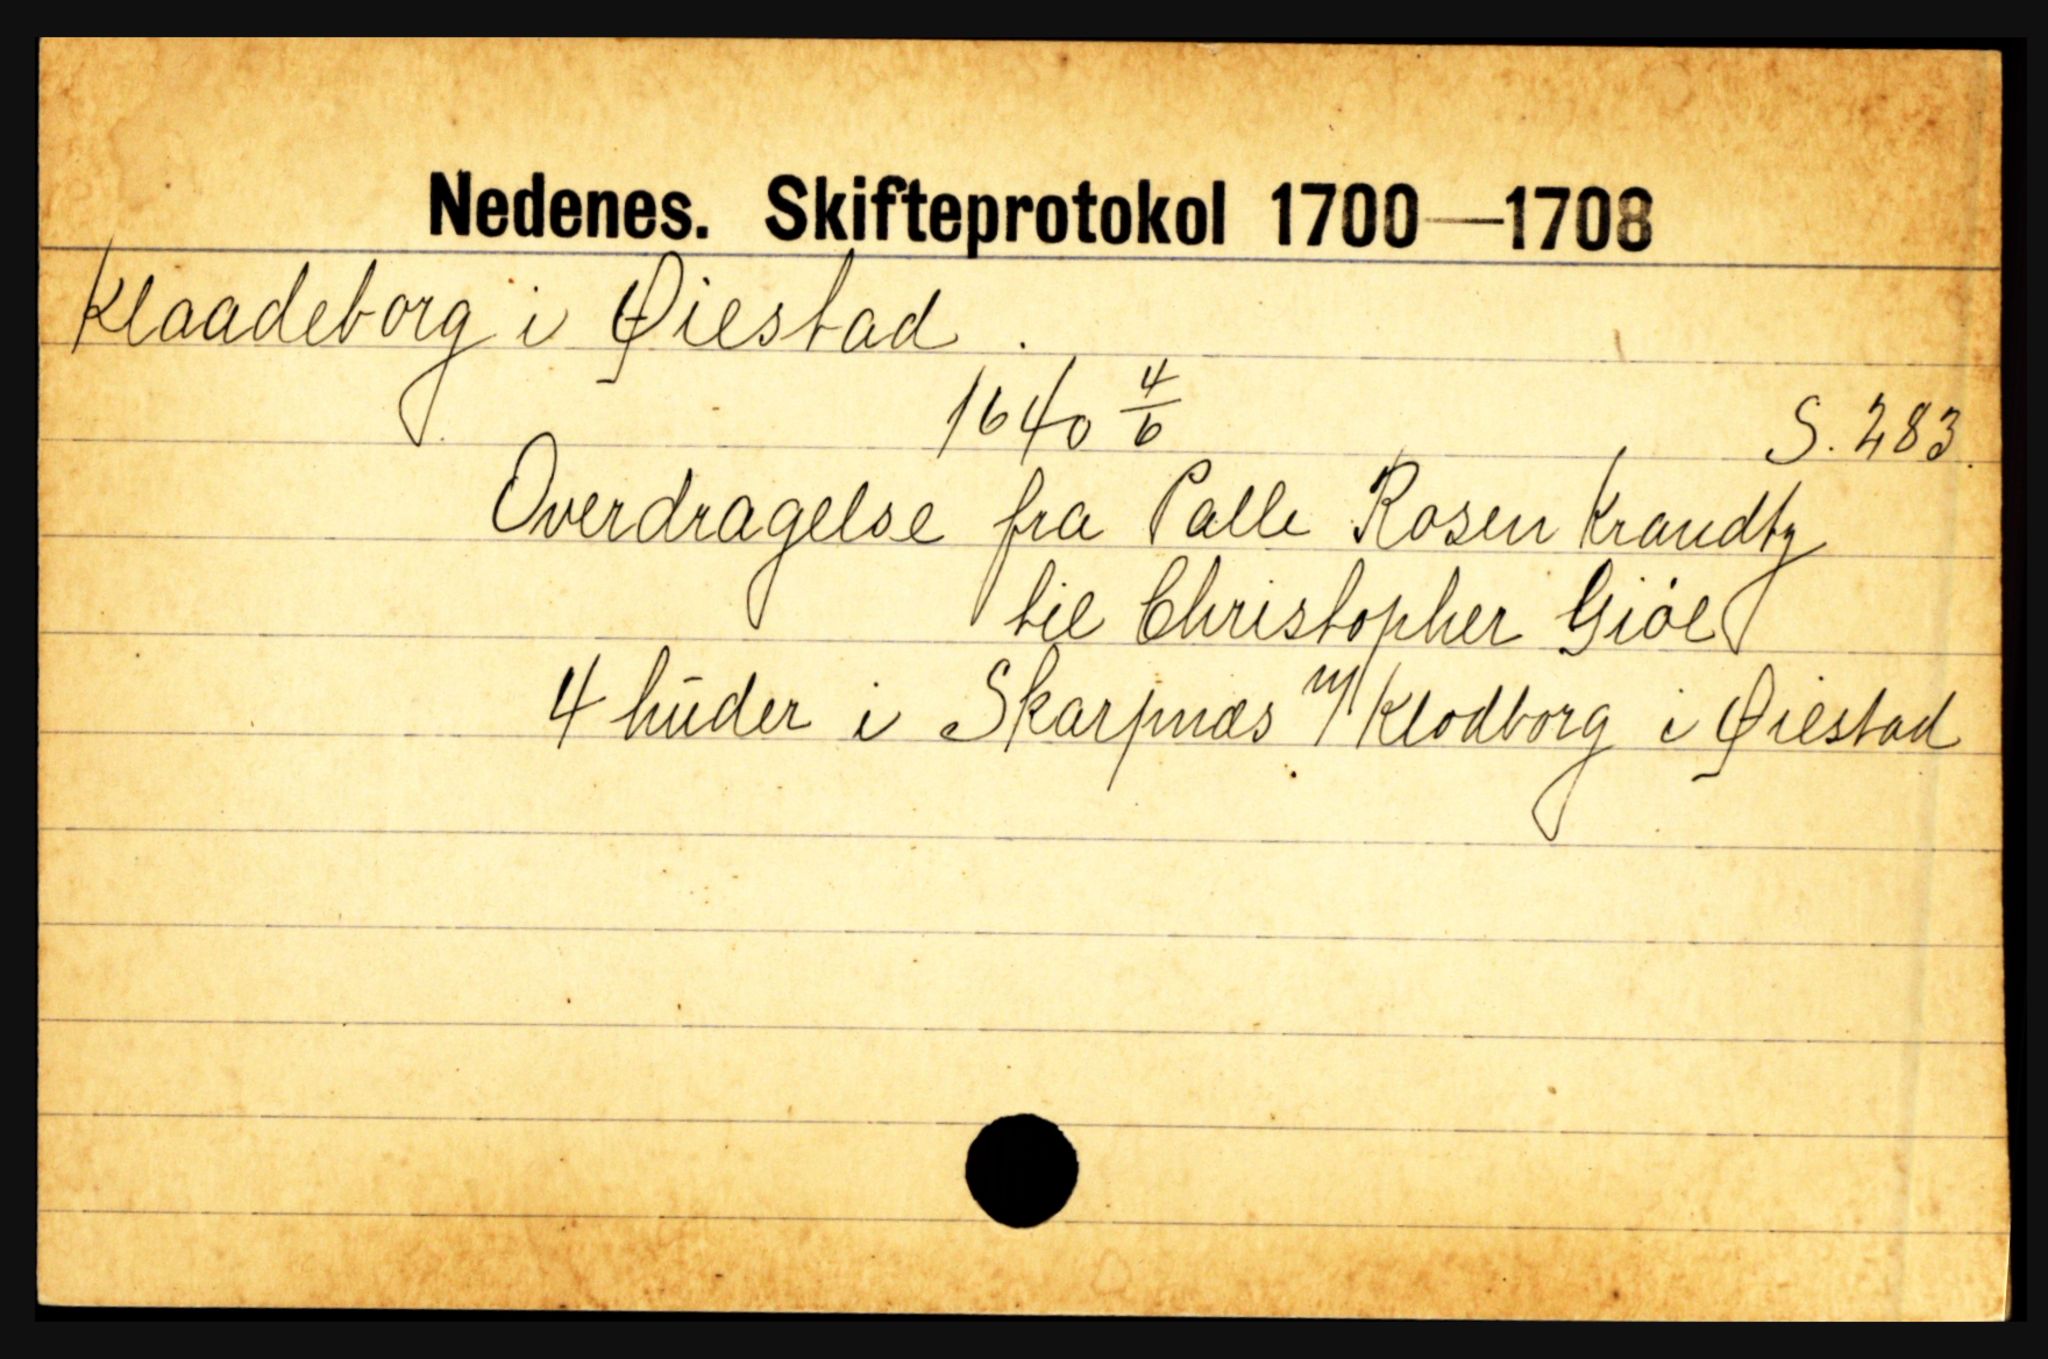 Nedenes. Skifteprotokol 1700—1708
Klaadeborg i Øiestad.
1640 4/6 S. 283.
Overdragelse fra Palle Rosen Krandtz
til Christopher Giøe
4 huder i Skarpnæs m/ Klodborg i Øiestad